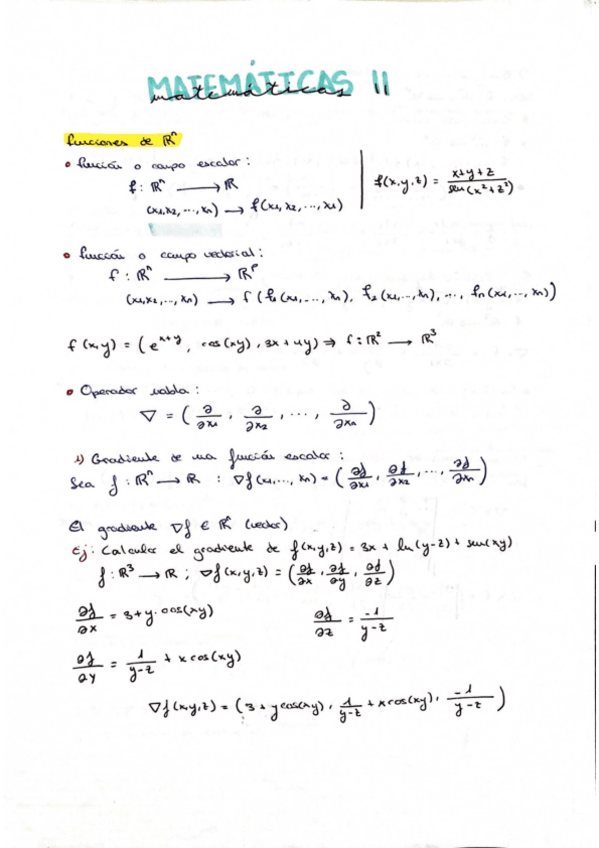 MATEMÁTICAS II
matemáticas
funciones de ℝⁿ
• función o campo escalar:
f: ℝⁿ ⟶ ℝ
(x₁,x₂,...,xₙ) ⟶ f(x₁,x₂,...,x₁)
f(x,y,z) = (x+y+z)/(sen(x²+z²))
• función o campo vectorial:
f: ℝⁿ ⟶ ℝᵖ
(x₁,x₂,...,xₙ) ⟶ f(f₁(x₁,...,xₙ), f₂(x₁,...,xₙ), ..., fₙ(x₁,...,xₙ))
f(x,y) = (e^(x+y), cos(xy), 3x+4y) ⇒ f: ℝ² ⟶ ℝ³
• Operador nabla:
∇ = (∂/∂x₁, ∂/∂x₂, ..., ∂/∂xₙ)
1) Gradiente de una función escalar:
Sea f: ℝⁿ ⟶ ℝ : ∇f(x₁,...,xₙ) = (∂f/∂x₁, ∂f/∂x₂, ..., ∂f/∂xₙ)
El gradiente ∇f ∈ ℝⁿ (vector)
Ej: Calcular el gradiente de f(x,y,z) = 3x + ln(y-z) + sen(xy)
f: ℝ³ ⟶ ℝ ; ∇f(x,y,z) = (∂f/∂x, ∂f/∂y, ∂f/∂z)
∂f/∂x = 3+y·cos(xy)
∂f/∂z = -1/(y-z)
∂f/∂y = 1/(y-z) + x cos(xy)
∇f(x,y,z) = (3+y cos(xy), 1/(y-z) + x cos(xy), -1/(y-z))